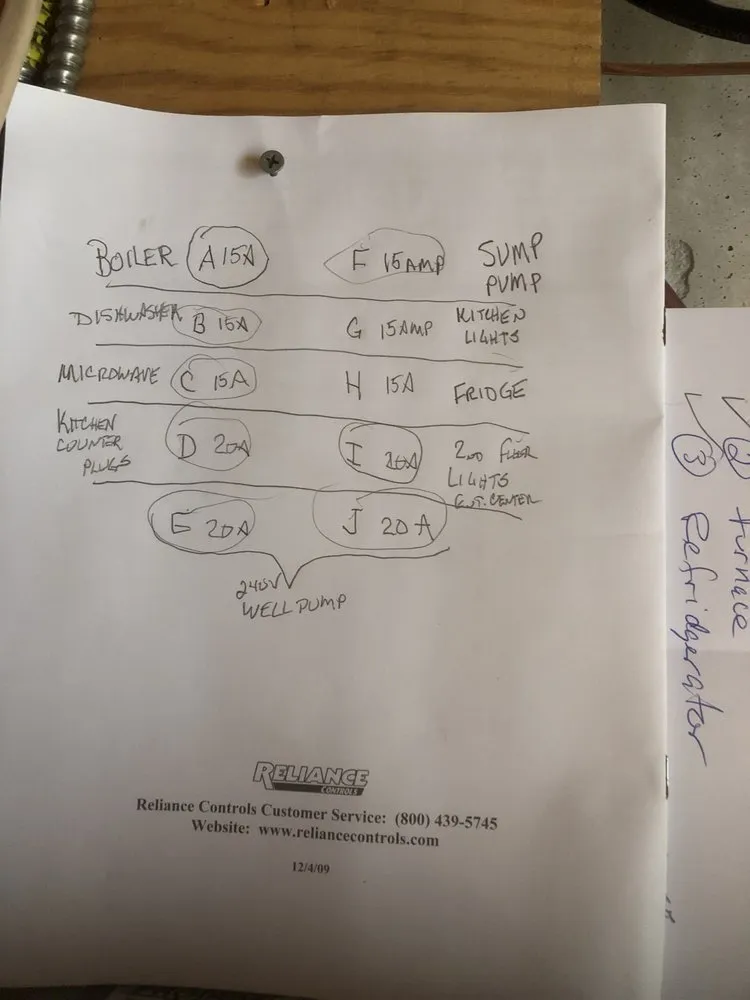 BOILER A 15A F 15 AMP SUMP
PUMP
DISHWASHER B 15A G 15AMP KITCHEN
LIGHTS
MICROWAVE C 15A H 15A FRIDGE
KITCHEN
COUNTER
PLUGS
D 20A I 20A 2ND FLOOR
LIGHTS
ENT. CENTER
E 20A J 20A
240V
WELL PUMP
RELIANCE
CONTROLS
Reliance Controls Customer Service: (800) 439-5745
Website: www.reliancecontrols.com
12/4/09
2 furnace
3 Refridgerator